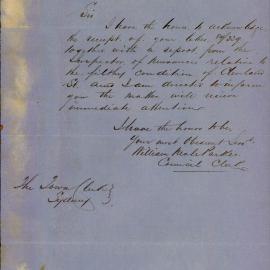 Sir
I have the honor to acknowledge
the receipt of your letter No 329
together with a report from the
Inspector of Nuisances relative to
the filthy condition of
St. and I am directed to inform
you the matter will receive
immediate attention
I have the honor to be
Your most Obedient Servt
William Neale Parker
Council Clerk
The Town Clerk }
Sydney }